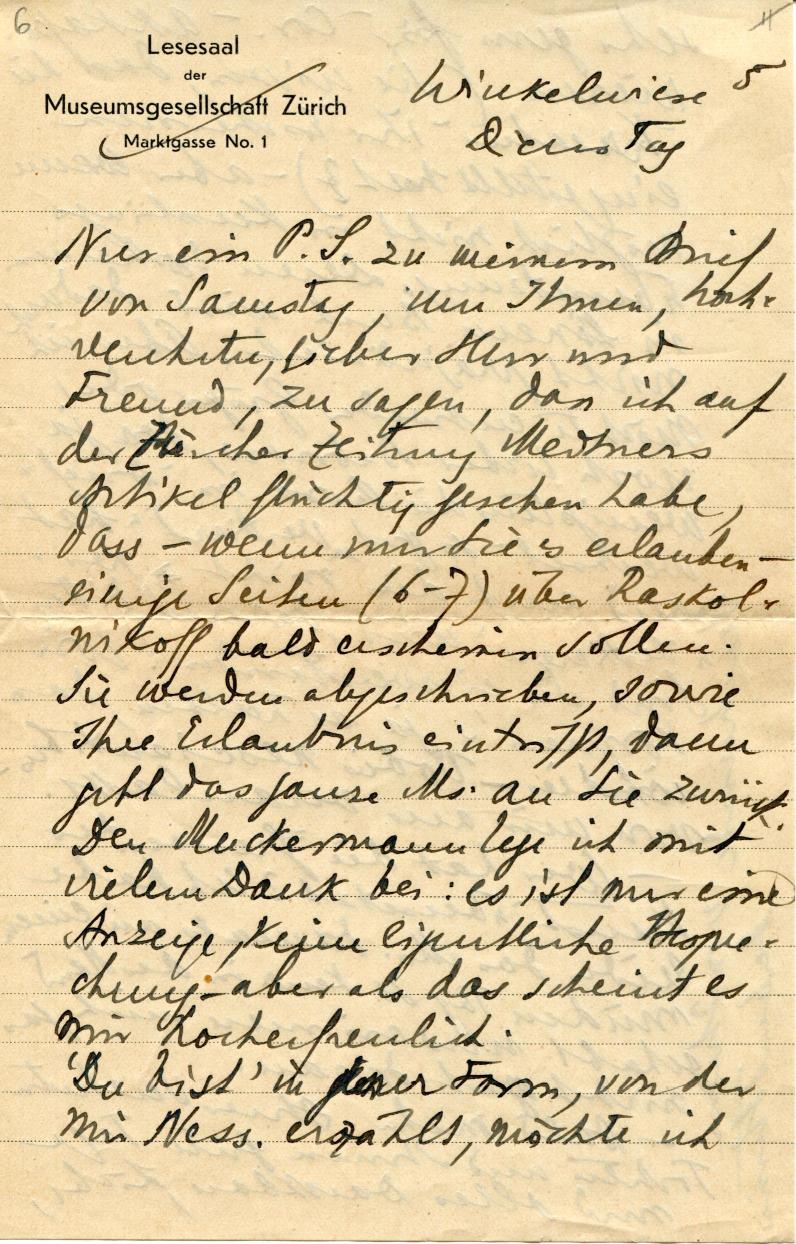 6
Lesesaal
der
Museumsgesellschaft Zürich
Marktgasse No. 1
Winkelwiese 5
Dienstag
Nur ein P.S. zu meinem Brief
von Samstag, um Ihnen, hoch-
verehrter, lieber Herr und
Freund, zu sagen, dass ich auf
der Zürcher Zeitung Medtners
Artikel flüchtig gesehen habe,
dass – wenn nur Sie es erlauben –
einige Seiten (6-7) über Raskol-
nikoff bald erscheinen sollen.
Sie werden abgeschrieben, sowie
Ihre Erlaubnis eintrifft, dann
geht das ganze Ms. an Sie zurück.
Den Muckermann lege ich mit
vielem Dank bei: es ist nur eine
Anzeige, keine eigentliche Bespre-
chung – aber als das scheint es
mir hocherfreulich.
'Du bist' in jener Form, von der
mir Ness. erzählt, möchte ich